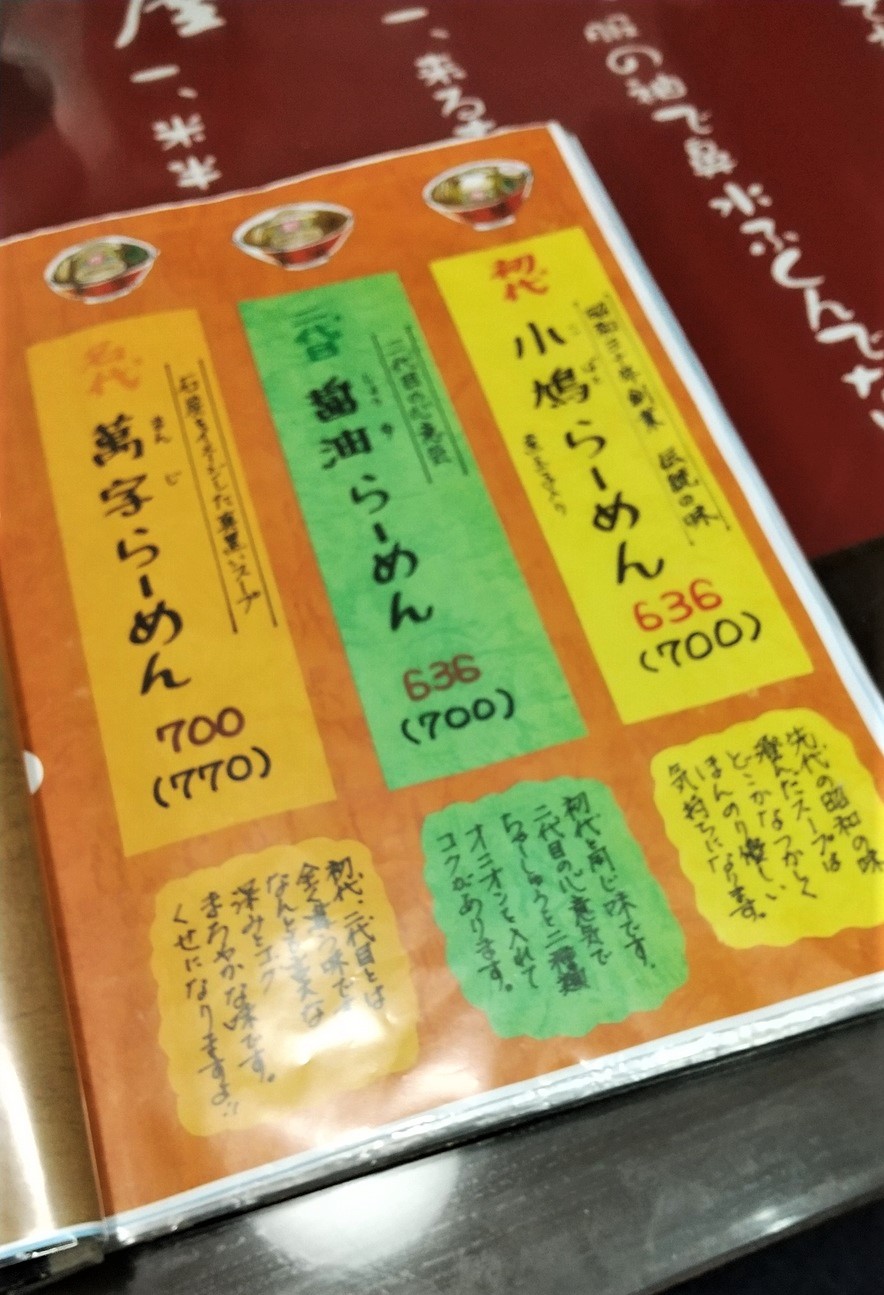 一、来る
の袖で鼻水ふん
屋
一、
初代
小鳩らーめん
昭和三十年創業 伝説の味
636
(700)
先代の昭和の味
澄んだスープは
どこかなつかしく
ほんのり優しい
気持ちになります。
二代目
醤油らーめん
しょうゆ
二代目の心意気
636
(700)
初代と同じ味です。
二代目の心意気で
ちゃーしゅうを二種類
オニオンを入れて
コクがあります。
名代
萬字らーめん
まんじ
した真黒いスープ
700
(770)
初代、二代目とは
全く違う味です
なんとも
深みとコク
まろやかな味です。
くせになりますよ!!